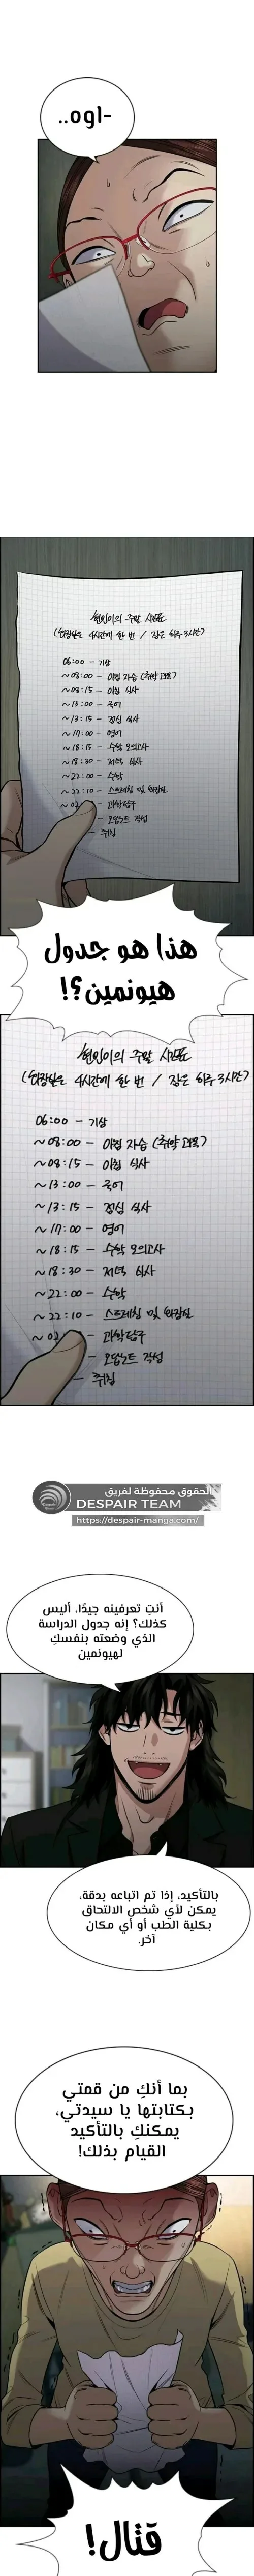 -اوه..
현민이의 주말 시간표
(화장실은 4시간에 한 번 / 잠은 하루 3시간)
06:00 - 기상
~08:00 - 아침 자습 (취약 과목)
~08:15 - 아침 식사
~13:00 - 국어
~13:15 - 점심 식사
~17:00 - 영어
~18:15 - 수학 모의고사
~18:30 - 저녁 식사
~22:00 - 수학
~22:10 - 스트레칭 및 화장실
~02 - 과학탐구
- 오답노트 작성
- 취침
هذا هو جدول
هيونمين؟!
현민이의 주말 시간표
(화장실은 4시간에 한 번 / 잠은 하루 3시간)
06:00 - 기상
~08:00 - 아침 자습 (취약 과목)
~08:15 - 아침 식사
~13:00 - 국어
~13:15 - 점심 식사
~17:00 - 영어
~18:15 - 수학 모의고사
~18:30 - 저녁 식사
~22:00 - 수학
~22:10 - 스트레칭 및 화장실
~02 - 과학탐구
- 오답노트 작성
- 취침
الحقوق محفوظة لفريق
DESPAIR TEAM
https://despair-manga.com/
أنتِ تعرفينه جيدًا، أليس
كذلك؟ إنه جدول الدراسة
الذي وضعته بنفسكِ
لهيونمين
بالتأكيد، إذا تم اتباعه بدقة،
يمكن لأي شخص الالتحاق
بكلية الطب أو أي مكان
آخر.
بما أنكِ من قمتي
بكتابتها يا سيدتي،
يمكنكِ بالتأكيد
القيام بذلك!
قتال!